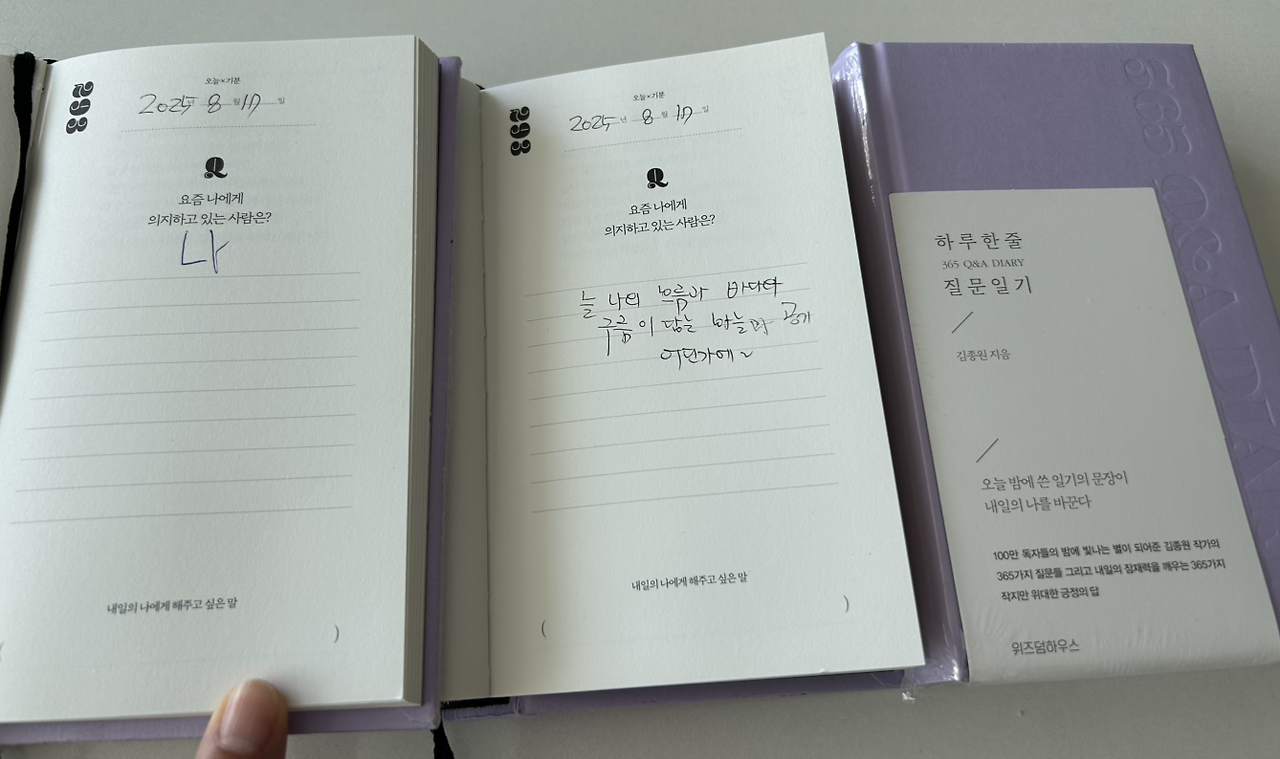 298
오늘×기분
2025년 8월 17일
Q
요즘 나에게
의지하고 있는 사람은?
나
내일의 나에게 해주고 싶은 말
( )
298
오늘×기분
2025년 8월 17일
Q
요즘 나에게
의지하고 있는 사람은?
늘 나의 바다다
구름이 닮는
어딘가에~
내일의 나에게 해주고 싶은 말
( )
365 Q&A DIARY
하루 한 줄
365 Q&A DIARY
질문 일기
김종원 지음
오늘 밤에 쓴 일기의 문장이
내일의 나를 바꾼다
100만 독자들의 밤에 빛나는 별이 되어준 김종원 작가의
365가지 질문들 그리고 내일의 잠재력을 깨우는 365가지
작지만 위대한 긍정의 답
위즈덤하우스